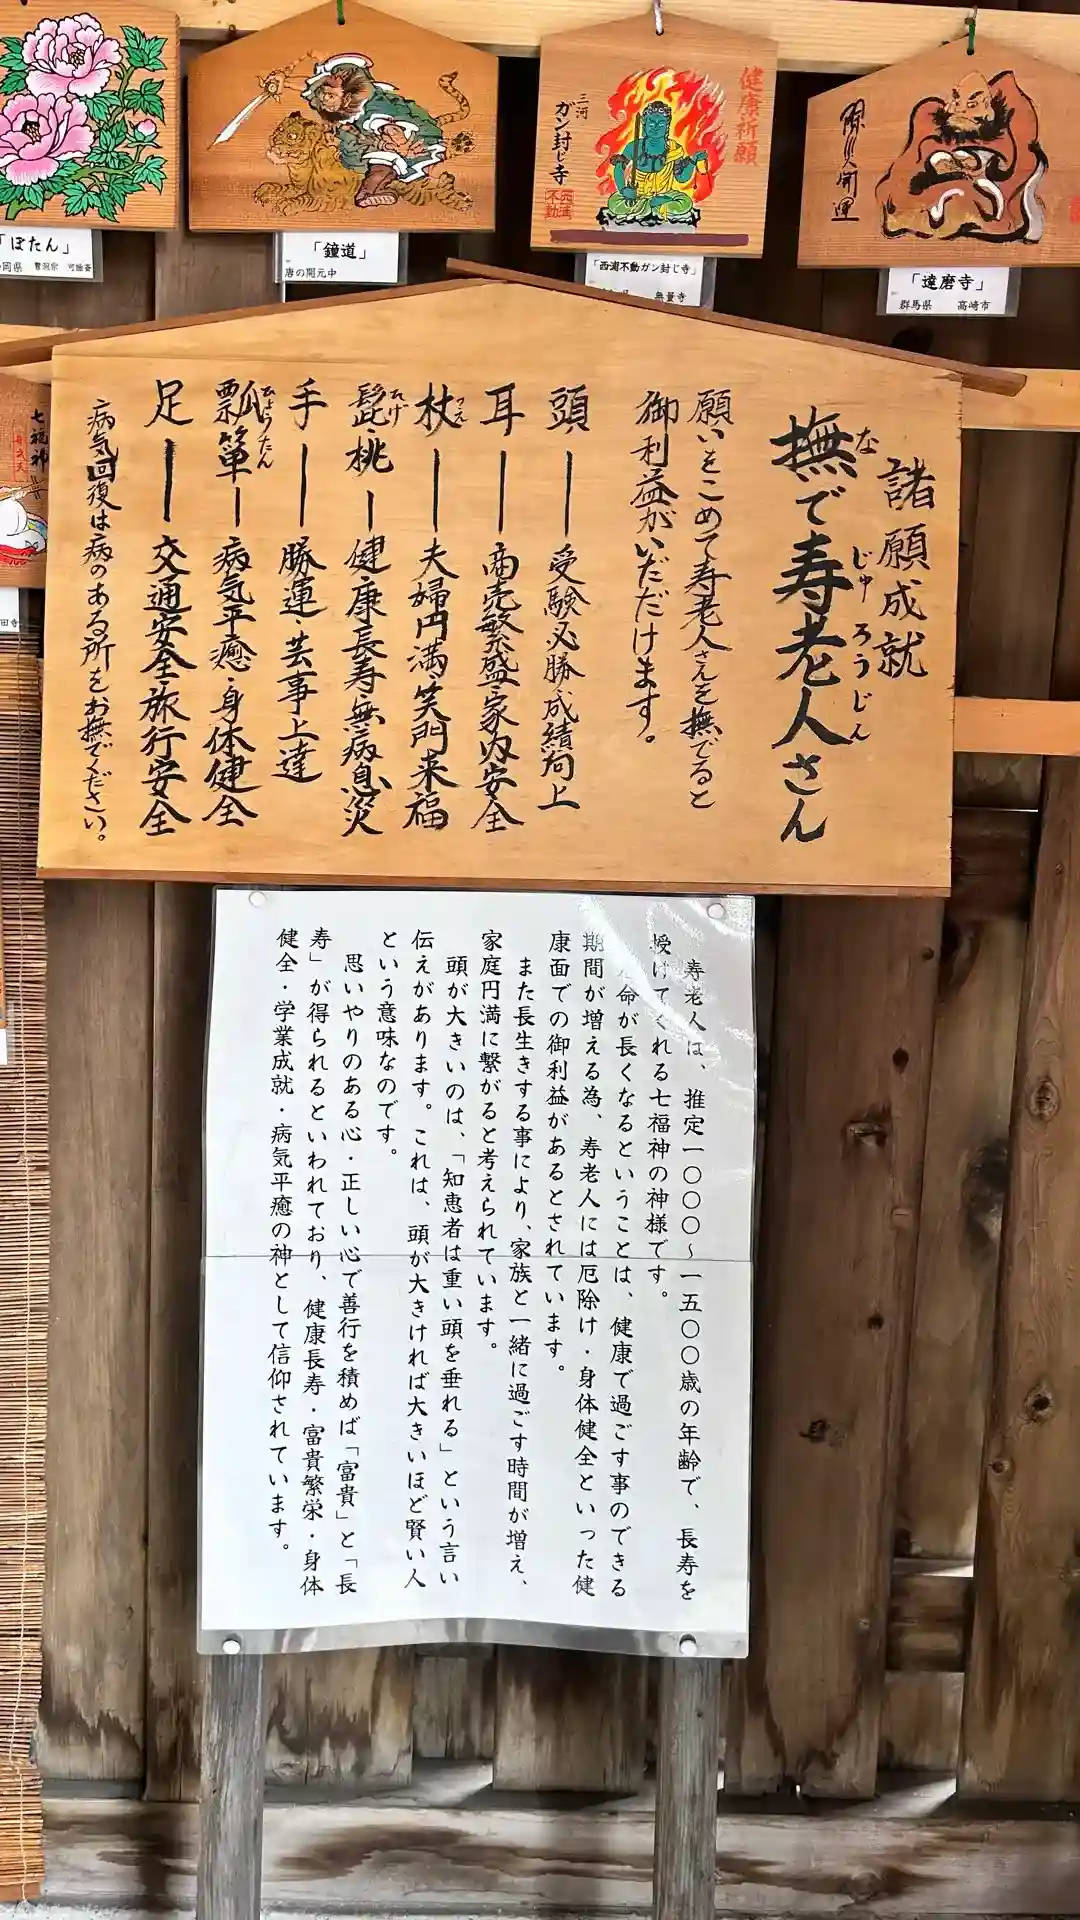 「ぼたん」
曹洞宗 可睡斎
「鐘道」
唐の開元中
健康祈願
三河
ガン封じ寺
西浦
不動
「西浦不動ガン封じ寺」
無量寺
「達磨寺」
群馬県 高崎市
七福神
諸願成就
撫で寿老人さん
な じゅろうじん
願いをこめて寿老人さんを撫でると
御利益がいただけます。
頭 ― 受験必勝・成績向上
耳 ― 商売繁盛・家内安全
杖 ― 夫婦円満・笑門来福
つえ
髭・桃 ― 健康長寿・無病息災
ひげ
手 ― 勝運・芸事上達
瓢箪 ― 病気平癒・身体健全
ひょうたん
足 ― 交通安全・旅行安全
病気回復は病のある所をお撫でください。
寿老人は、推定一〇〇〇～一五〇〇歳の年齢で、長寿を
授けてくれる七福神の神様です。
命が長くなるということは、健康で過ごす事のできる
期間が増える為、寿老人には厄除け・身体健全といった健
康面での御利益があるとされています。
また長生きする事により、家族と一緒に過ごす時間が増え、
家庭円満に繋がると考えられています。
頭が大きいのは、「知恵者は重い頭を垂れる」という言い
伝えがあります。これは、頭が大きければ大きいほど賢い人
という意味なのです。
思いやりのある心・正しい心で善行を積めば「富貴」と「長
寿」が得られるといわれており、健康長寿・富貴繁栄・身体
健全・学業成就・病気平癒の神として信仰されています。